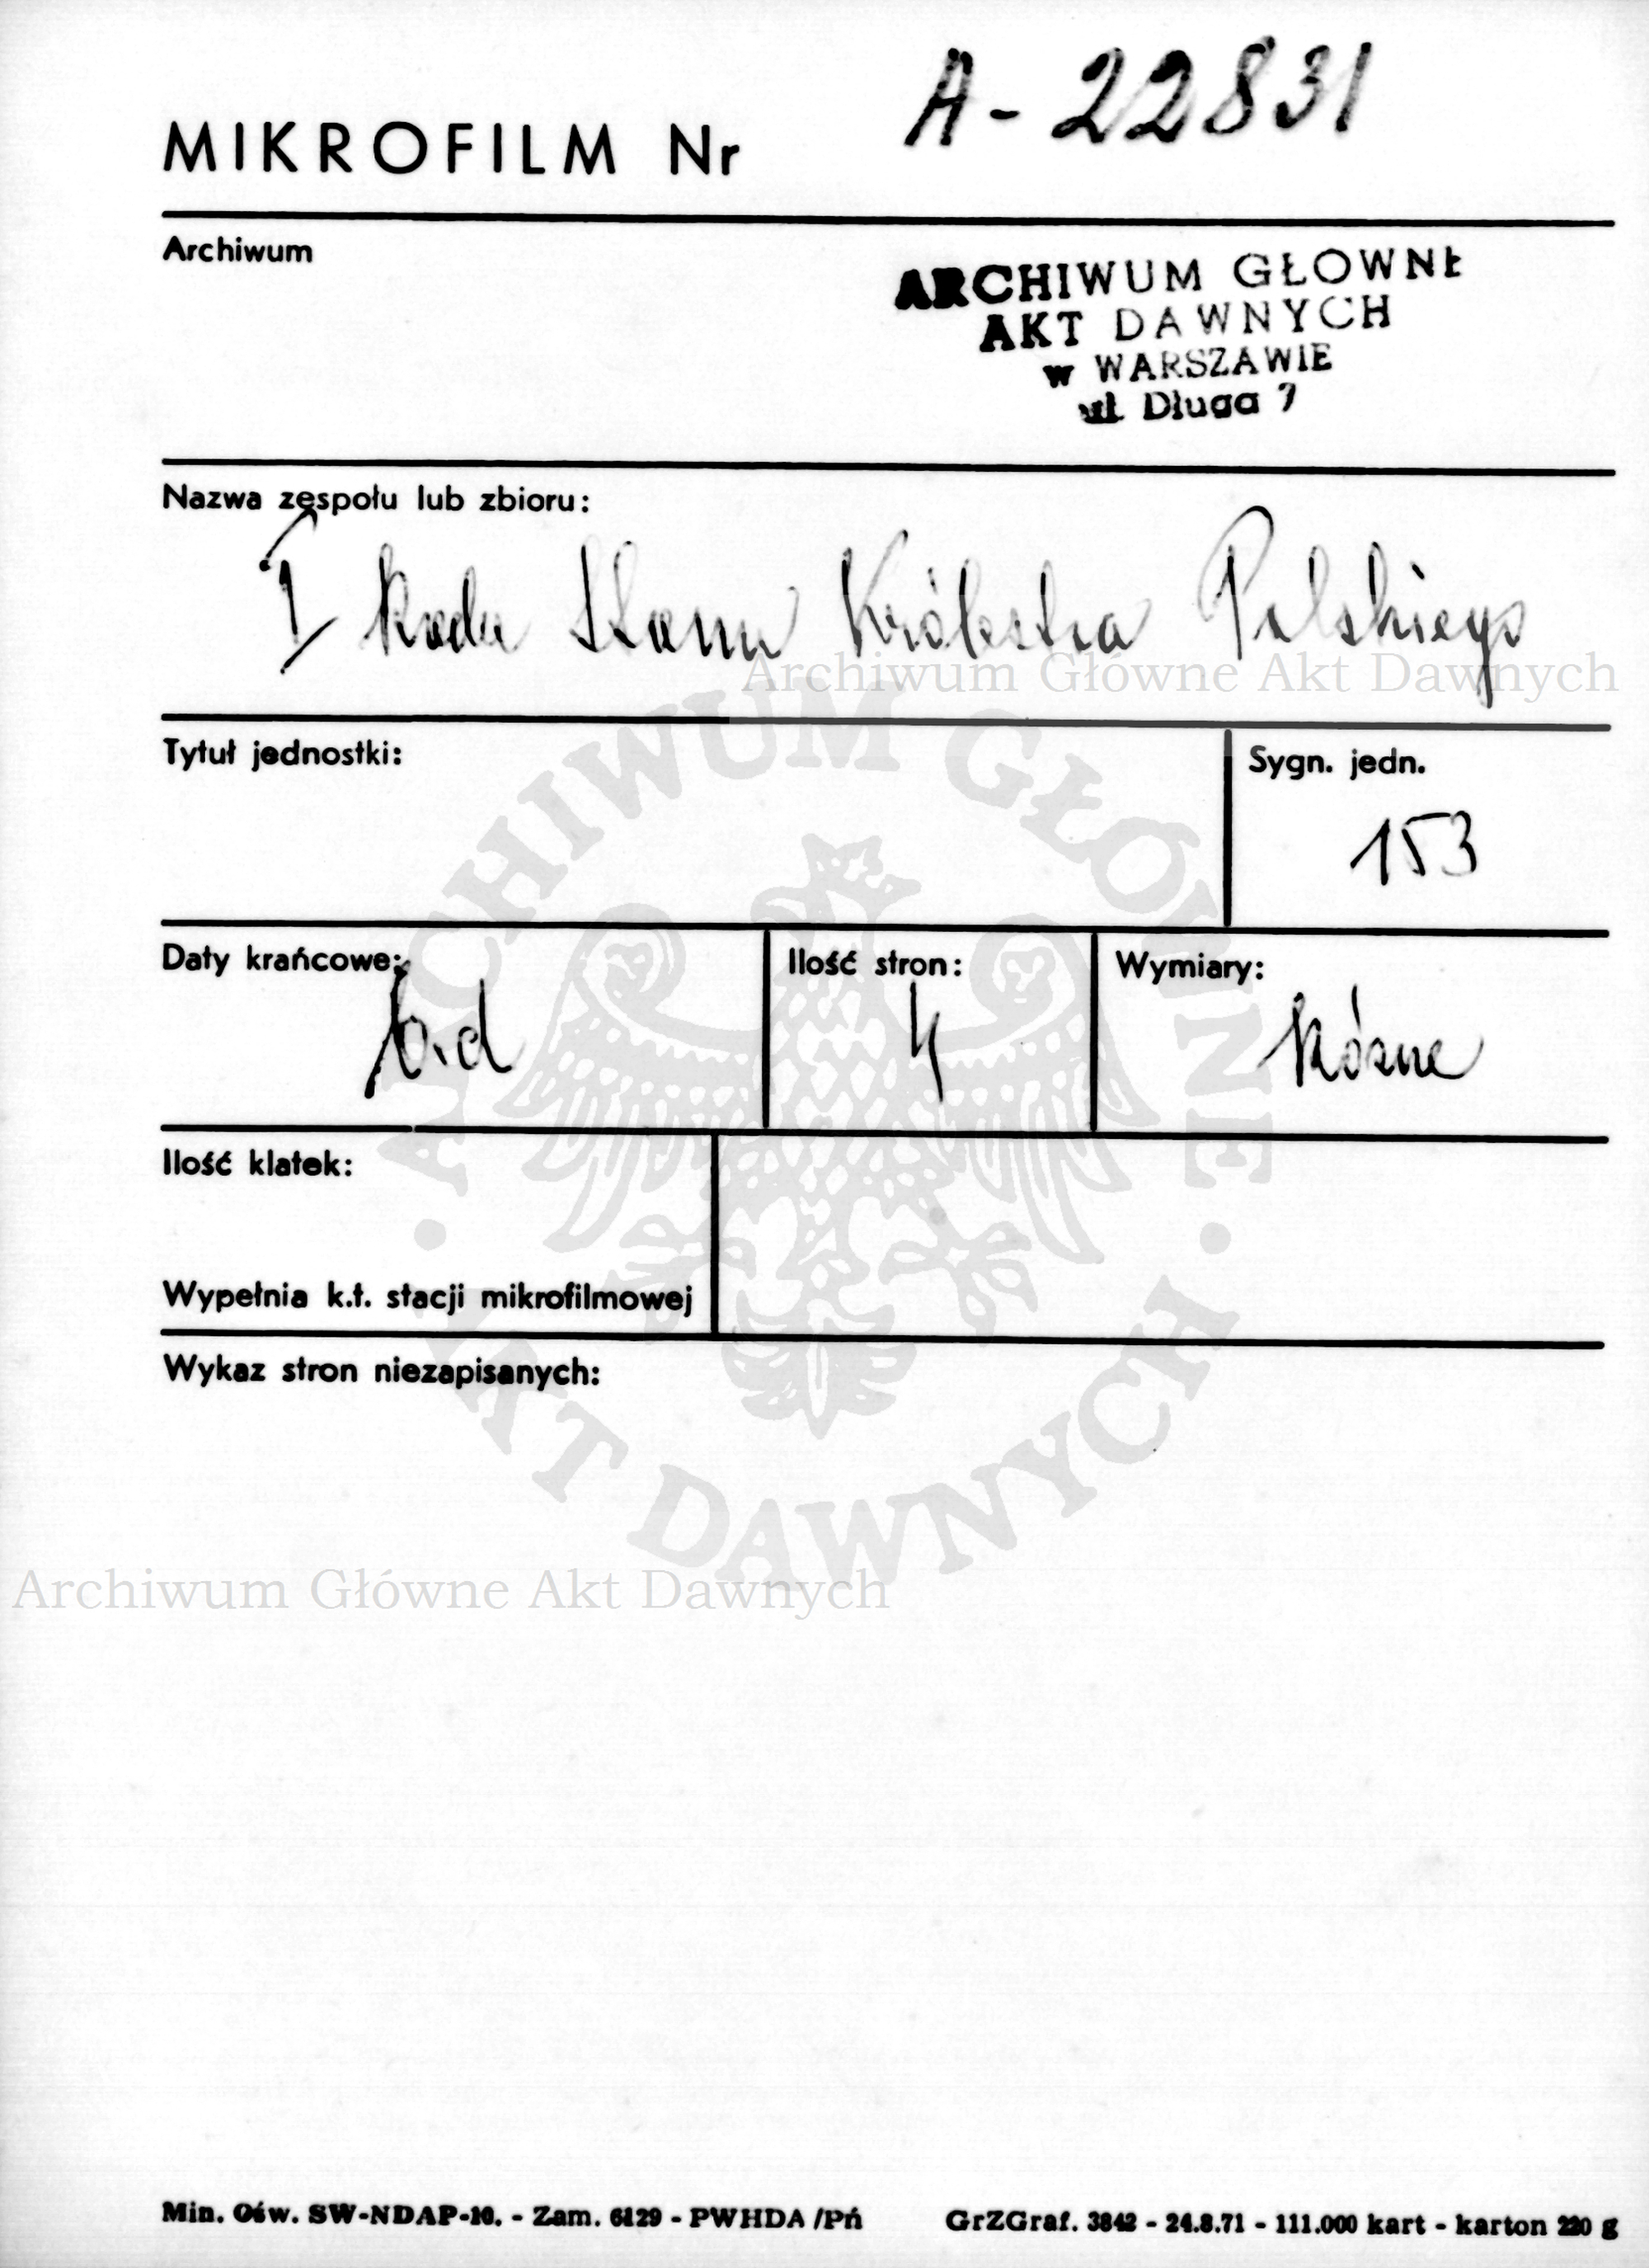 A-22831
MIKROFILM Nr
Archiwum
ARCHIWUM GŁOWNE
AKT DAWNYCH
w WARSZAWIE
ul. Długa 7
Nazwa zespołu lub zbioru:
I Rada Stanu Królestwa Polskiego
Archiwum Główne Akt Dawnych
Tytuł jednostki:
Sygn. jedn.
153
Daty krańcowe:
b.d
Ilość stron:
4
Wymiary:
Różne
Ilość klatek:
Wypełnia k.t. stacji mikrofilmowej
Wykaz stron niezapisanych:
ARCHIWUM GŁÓWNE
· AKT DAWNYCH ·
Archiwum Główne Akt Dawnych
Min. Ośw. SW-NDAP-10. - Zam. 6129 - PWHDA /Pń GrZGraf. 3842 - 24.8.71 - 111.000 kart - karton 220 g